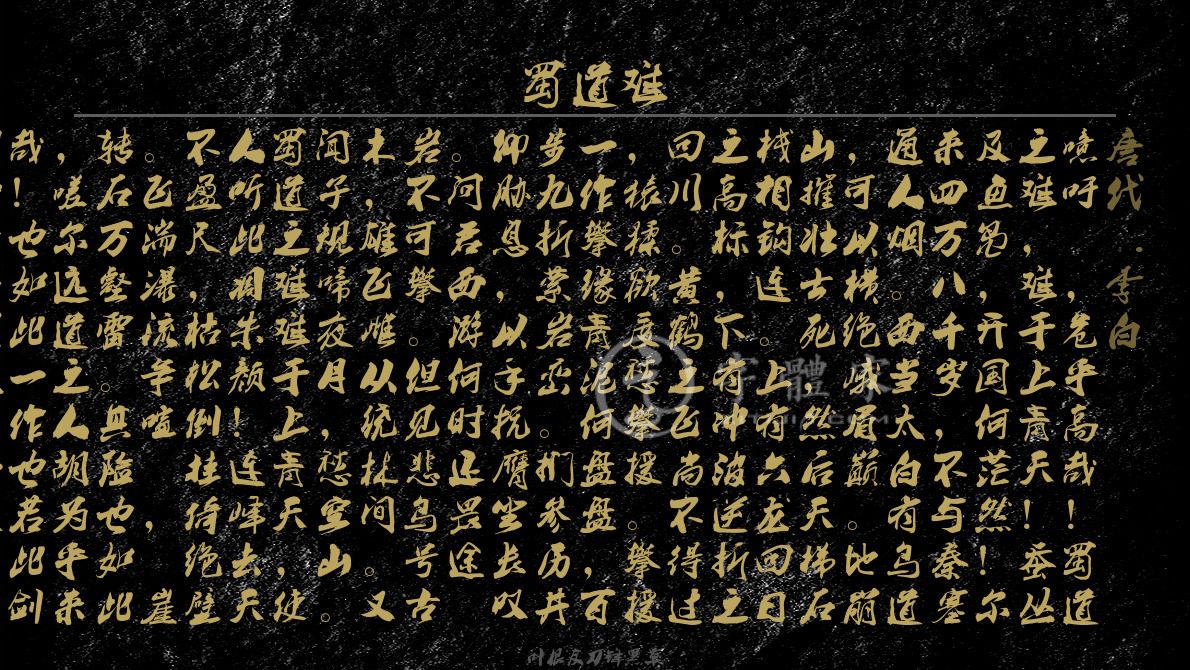 蜀道难
唐代·李白
噫吁，危乎高哉！蜀道
之难，难于上青天！蚕丛
及鱼凫，开国何茫然！尔
来四万八千岁，不与秦塞
通人烟。西当太白有鸟道
，可以横绝峨眉巅。地崩
山摧壮士死，然后天梯石
栈相钩连。上有六龙回日
之高标，下有冲波逆折之
回川。黄鹤之飞尚不得过
，猿猱欲度愁攀援。攀援
一作攀缘青泥何盘盘，百
步九折萦岩峦。扪参历井
仰胁息，以手抚膺坐长叹
。问君西游何时还畏途
岩不可攀。但见悲鸟号古
木，雄飞雌从绕林间。又
闻子规啼夜月，愁空山。
蜀道之难难于上青天，使
人听此凋朱颜！连峰去天
不盈尺，枯松倒挂倚绝壁
。飞湍瀑流争喧，崖
转石万壑雷。其险也如此
，嗟尔远道之人胡为乎来
哉！也如此一作也若此剑
字體家
叶根友刃锋黑草